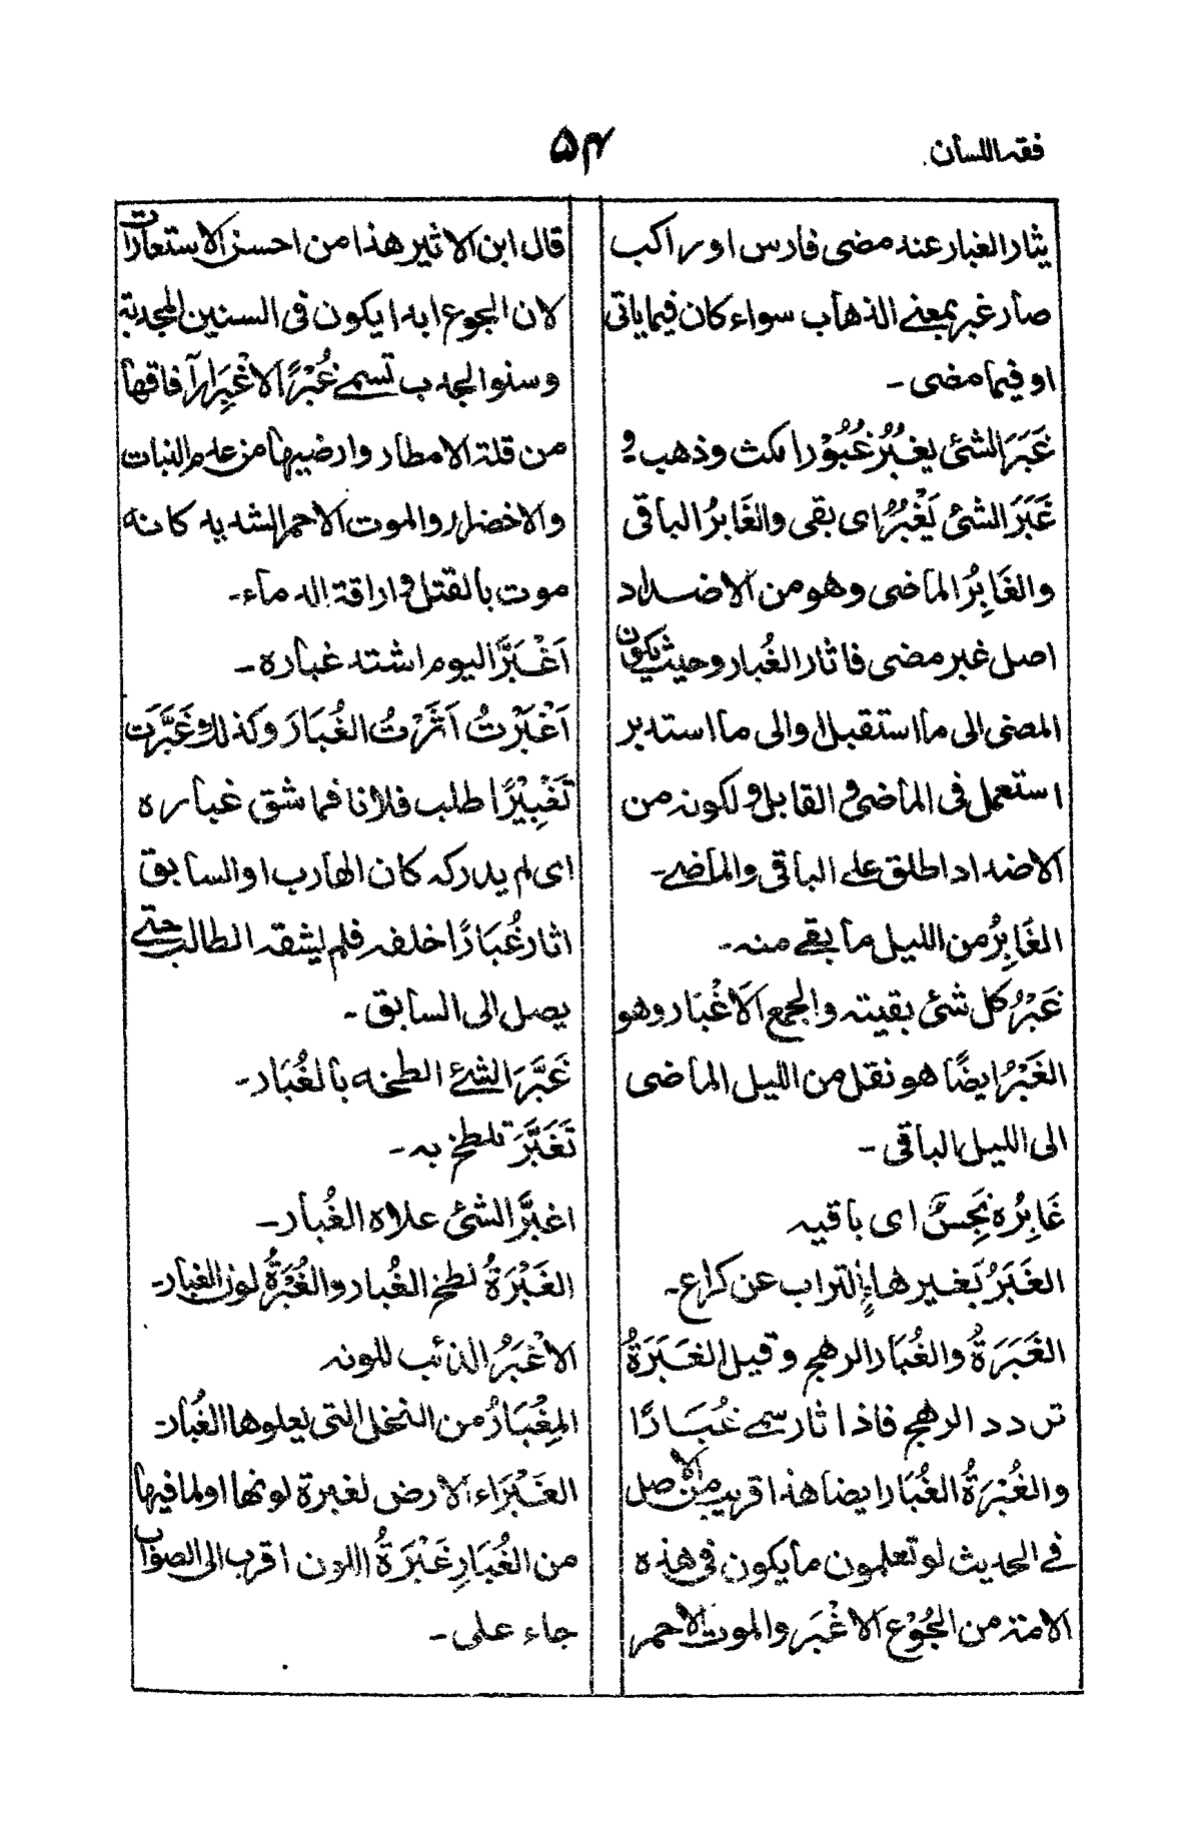 فقه اللسان
۵۴
يثار الغبار عند مضى فارس او راكب
صار غبر بمعنے الذهاب سواء كان فيما ياتى
او فيما مضى ۔
غَبَرَ الشئ يغبُرُ غُبُوْرا مكث وذهب و
غَبَرَ الشئ يَغْبُرُ اى بقى والغَابرُ الباقى
والغَابِرُ الماضى وهو من الاضداد
اصل غبر مضى فاثار الغُبار وحيث يكون
المضى الى ما استقبل او الى ما استدبر
استعمل فى الماضى و القابل و لكونه من
الاضداد اطلق علے الباقى والماضے ۔
الغَابِرُ من الليل ما بقے منه ۔
غَبْرُ كل شئ بقيته والجمع الاَغْبَار وهو
الغَبْرُ ايضًا هو نقل من الليل الماضى
الى الليل الباقى ۔
غَابِرُه نَجِسٌ اى باقيه
الغَبَرُ بَغير هاءٍ التراب عن كراع ۔
الغَبَرَةُ والغُبَار الرهج وقيل الغَبَرَةُ
تردد الرهج فاذا ثار سمے غُبَارًا
والغُبْرَةُ الغُبَار ايضا هذا قريب من الاصل
فے الحديث لو تعلمون ما يكون فى هذه
الامة من الجُوْع الاَغْبَر والموت الاحمر
قال ابن الاثير هذا من احسن الاستعارات
لان الجوع ابدا يكون فى السنين المجدبة
وسنو الجدب تسمے غُبْرًا لاغْبِرَار آفاقها
من قلة الامطار وارضيها من عدم النبات
والاخضرار والموت الاحمر الشديد كانه
موت بالقتل و اراقة الدماء ۔
اَغْبَرَّ اليوم اشتد غباره ۔
اَغْبَرْتُ اَثَرْتُ الغُبَارَ وكذلك غَبَّرَت
تَغْبِيْرًا طلب فلانا فما شق غباره
اى لم يدركه كان الهارب او السابق
اثار غُبَارًا خلفه فلم يشقه الطالب حتے
يصل الى السابق ۔
غَبَّرَ الشئے الطخه بالغُبَار ۔
تَغَبَّرَ تلطخ به ۔
اغبرَّ الشئ علاه الغُبار ۔
الغَبْرَةُ لطخ الغُبار والغُبْرَةُ لون الغبار ۔
الاَغْبَرُ الذئب للونه
المِغْبَارُ من النخل التى يعلوها الغُبار ۔
الغَبْرَاء الارض لغبرة لونها او لما فيها
من الغُبَارِ غَبْرَةُ اللون اقرب الى الصواب
جاء على ۔